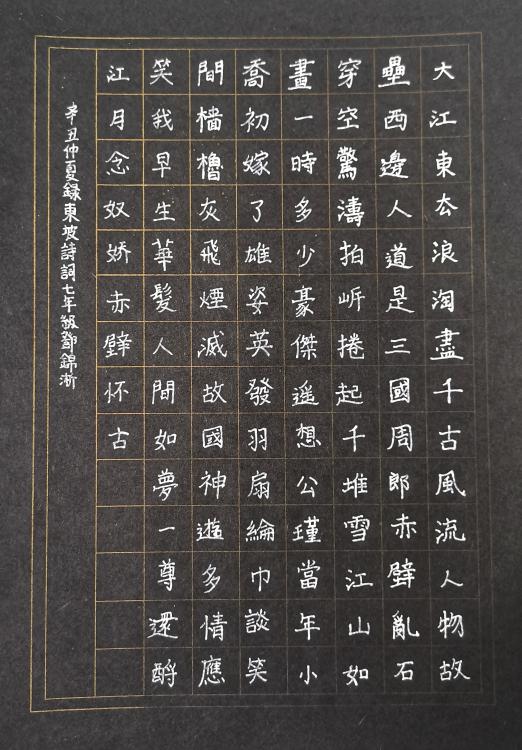 大江東去浪淘盡千古風流人物故
壘西邊人道是三國周郎赤壁亂石
穿空驚濤拍岸捲起千堆雪江山如
畫一時多少豪傑遥想公瑾當年小
喬初嫁了雄姿英發羽扇綸巾談笑
間檣櫓灰飛煙滅故國神遊多情應
笑我早生華髮人間如夢一尊還酹
江月念奴娇赤壁怀古
辛丑仲夏録東坡詩詞七年級鄧錦淅